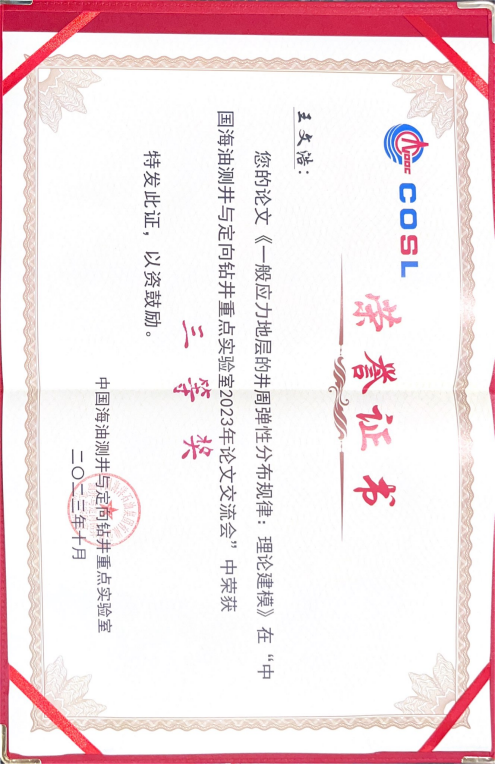 COSL
荣誉证书
王文浩：
您的论文《一般应力地层的井周弹性分布规律：理论建模》在“中
国海油测井与定向钻井重点实验室2023年论文交流会”中荣获
三等奖
特发此证，以资鼓励。
中国海油测井与定向钻井重点实验室
二〇二三年十月